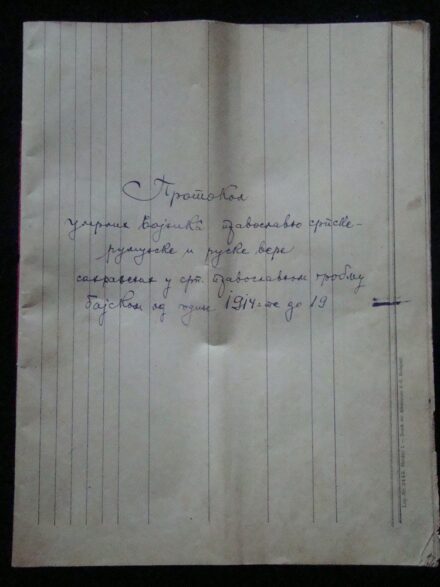 Протокол
умрлих војникâ православно српске-
румунске и руске вере
сахрањених у срп. православном гробљу
Бајском од године 1914-те до 19